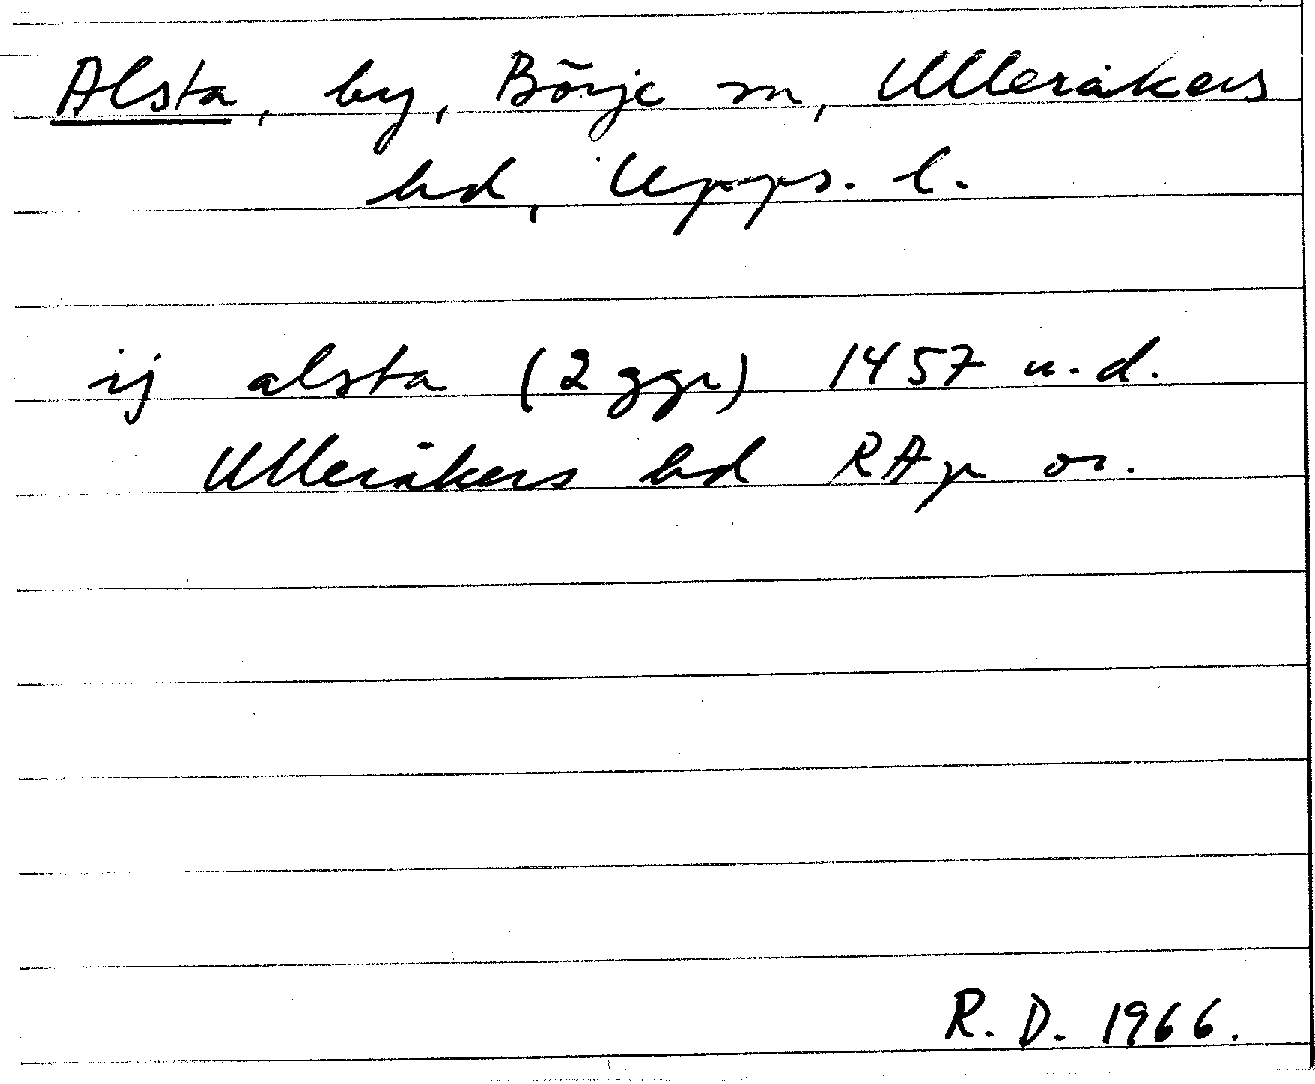 Alsta, by, Börje sn, Ulleråkers
hd, Upps. l.
ij alsta (2 ggr) 1457 u.d.
Ulleråkers hd RAp or.
R. D. 1966.